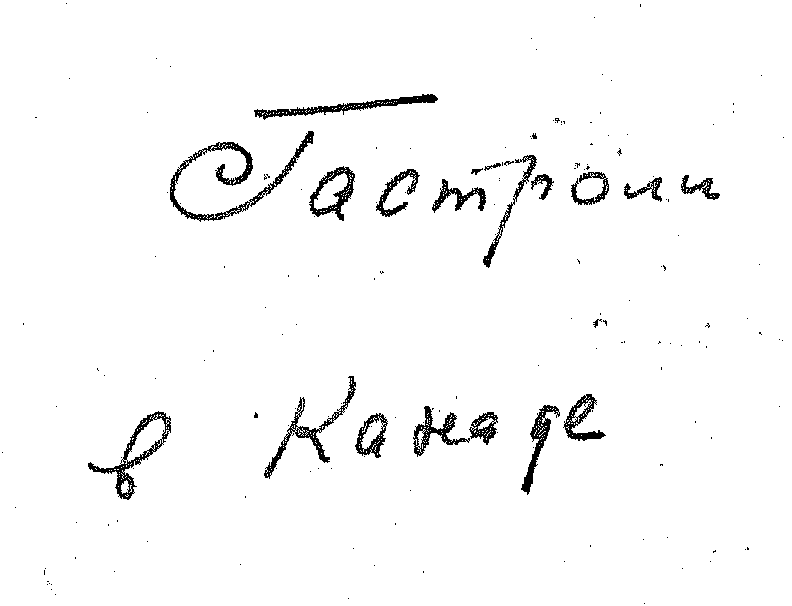 Гастроли
в Канаде